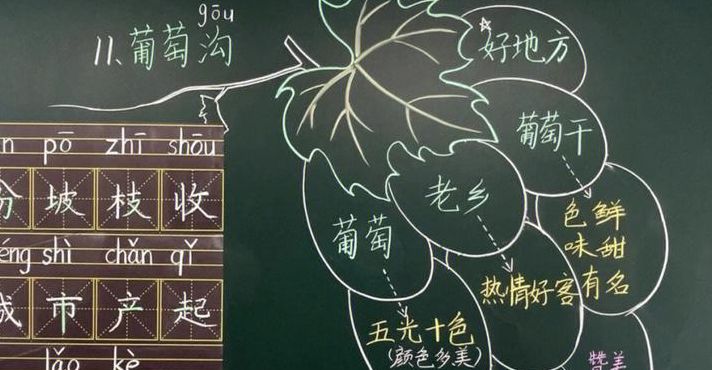 gōu
11.葡萄沟
pō zhī shōu
坡 枝 收
shì chǎn qǐ
市 产 起
lǎo kè
☆好地方
葡萄干
老乡
葡萄
色鲜
味甜
有名
热情好客
五光十色
(颜色多美)
赞美